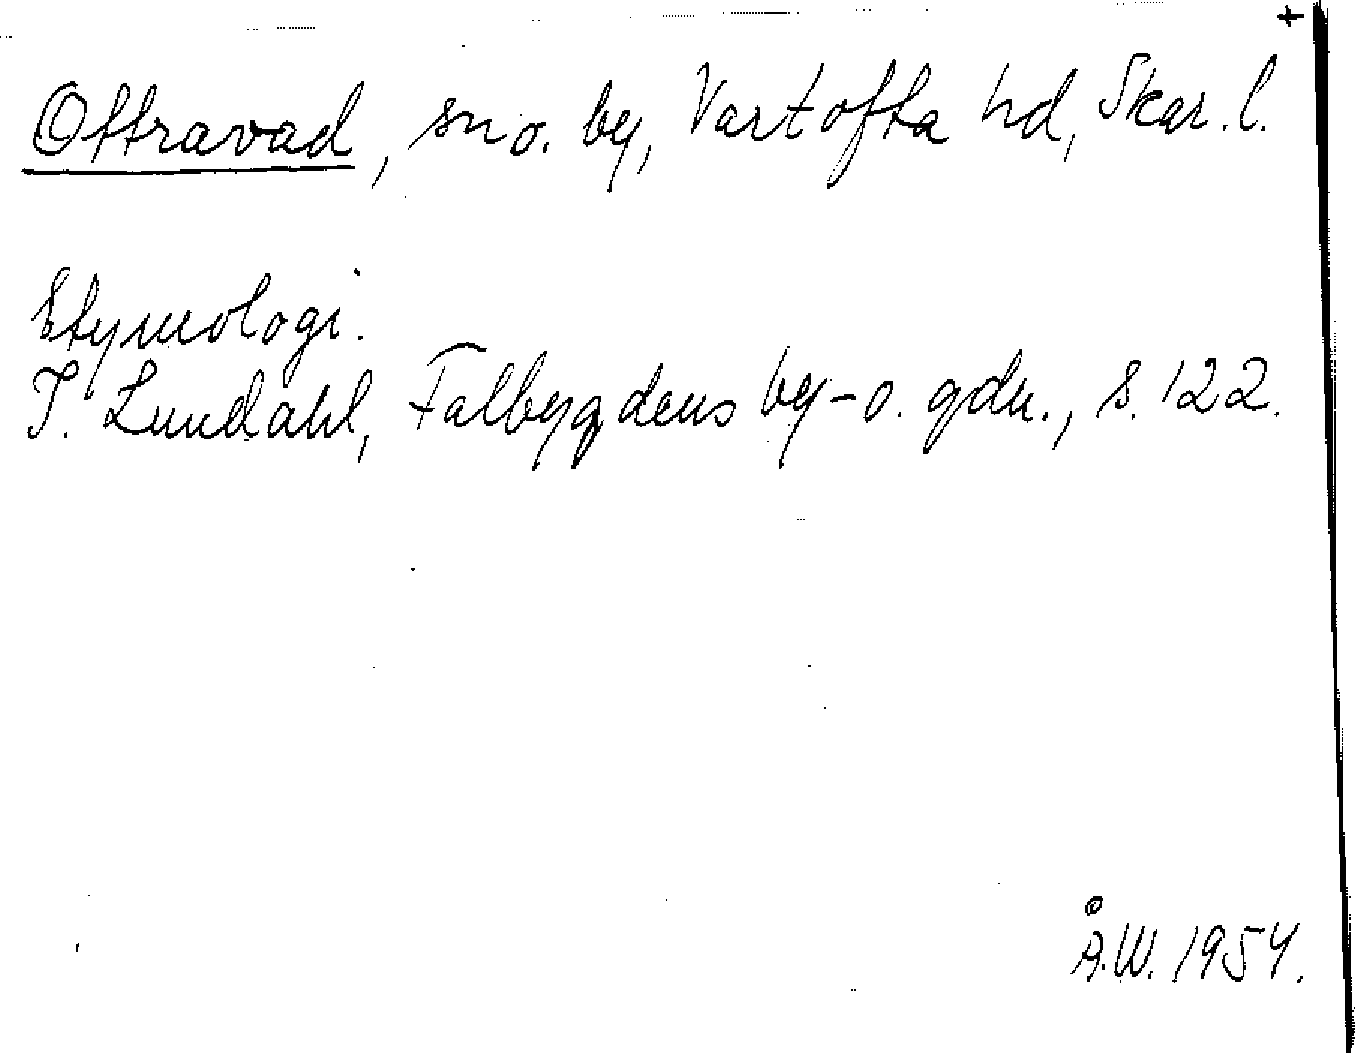 +
Ottravad, sn o. by, Vartofta hd, Skar. l.
Etymologi.
I. Lundahl, Falbygdens by- o. gdn., s. 122.
Å.W. 1954.